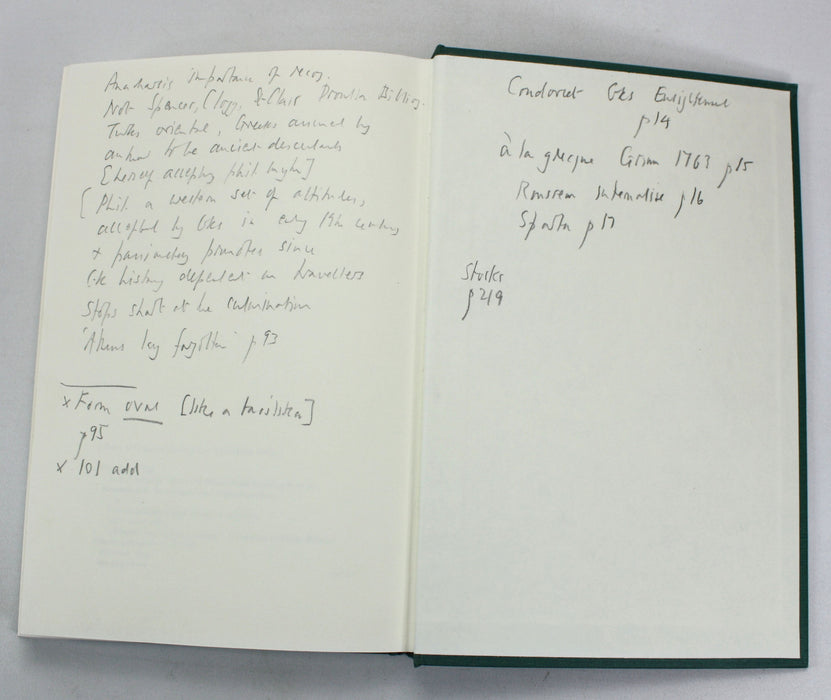 Anacharsis importance of recog.
Not Spencer, Clogg, St Clair Droulia Bibliog.
Turks oriental, Greeks assumed by
author to be ancient descendants
[thereof accepting phil myth]
[Phil a western set of attitudes,
accepted by Gks in early 19th century
+ promoted since
Gk history dependent on travellers
Stops short at the culmination
'Athens long forgotten' p93
x Form oval [like a basilika]
p95
x 101 add
Condorcet Gks Enlightenment
p14
à la grecque Grimm 1763 p15
Rousseau p16
Sparta p17
Storks
p219